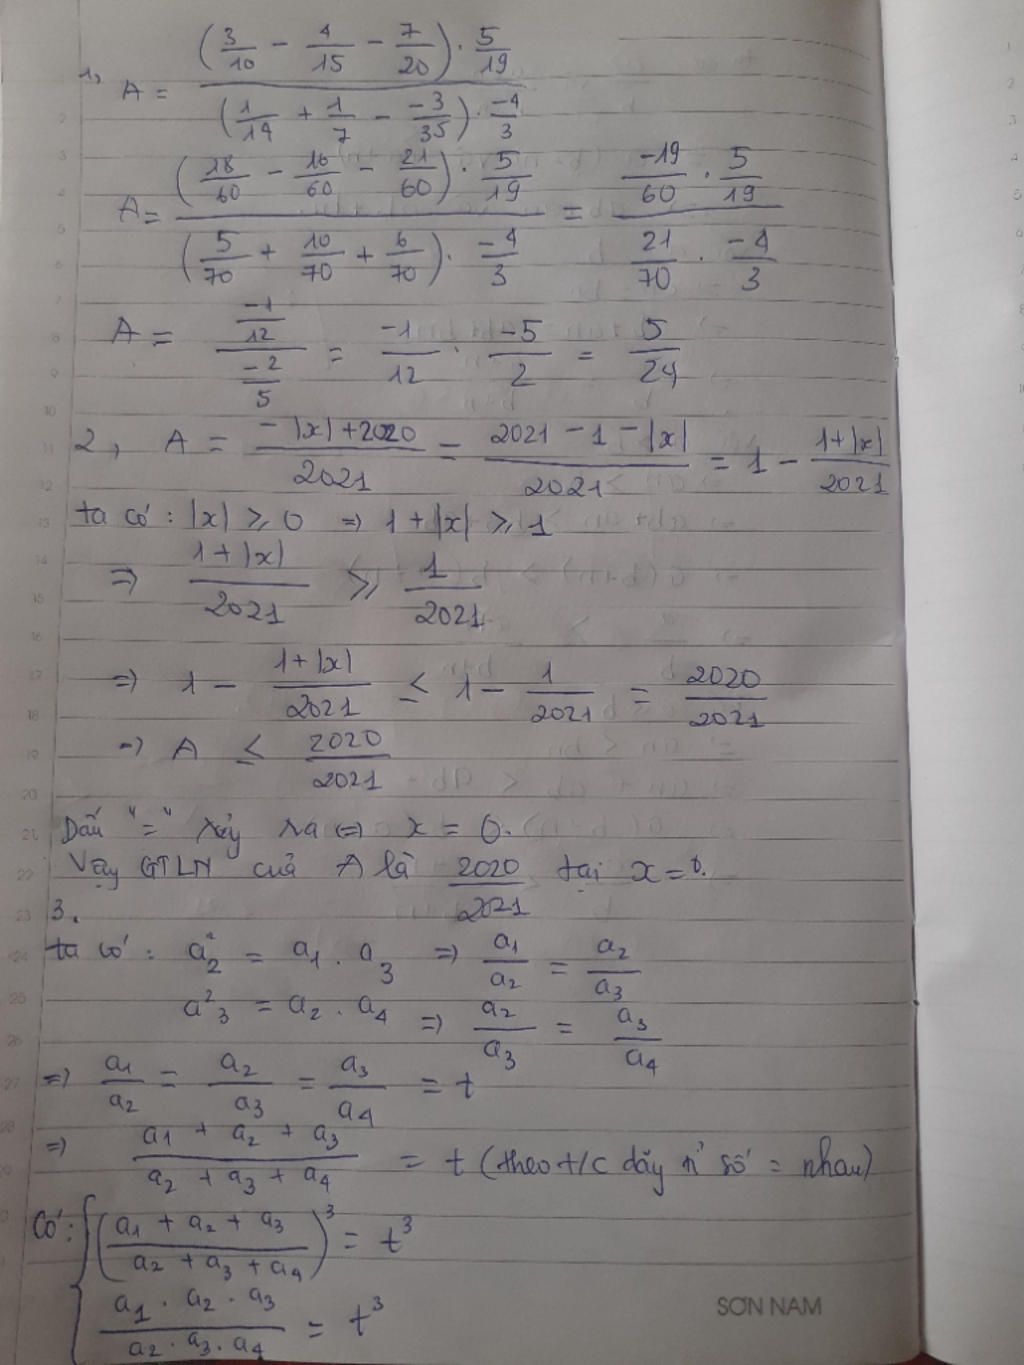 1, A = ((3/10 - 4/15 - 7/20) . 5/19) / ((1/14 + 1/7 - -3/35) . -4/3)
A = ((18/60 - 16/60 - 21/60) . 5/19) / ((5/70 + 10/70 + 6/70) . -4/3) = (-19/60 . 5/19) / (21/70 . -4/3)
A = (-1/12) / (-2/5) = -1/12 . -5/2 = 5/24
2, A = (-|x| + 2020)/2021 = (2021 - 1 - |x|)/2021 = 1 - (1+|x|)/2021
ta có : |x| ≥ 0 => 1 + |x| ≥ 1
=> (1+|x|)/2021 ≥ 1/2021
=> 1 - (1+|x|)/2021 ≤ 1 - 1/2021 = 2020/2021
=> A ≤ 2020/2021
Dấu "=" xảy ra <=> x = 0.
Vậy GTLN của A là 2020/2021 tại x = 0.
3.
ta có : a₂² = a₁ . a₃ => a₁/a₂ = a₂/a₃
a²₃ = a₂ . a₄ => a₂/a₃ = a₃/a₄
=> a₁/a₂ = a₂/a₃ = a₃/a₄ = t
=> (a₁ + a₂ + a₃)/(a₂ + a₃ + a₄) = t (theo t/c dãy tỉ số = nhau)
Có : { ((a₁ + a₂ + a₃)/(a₂ + a₃ + a₄))³ = t³
(a₁ . a₂ . a₃)/(a₂ . a₃ . a₄) = t³
SƠN NAM